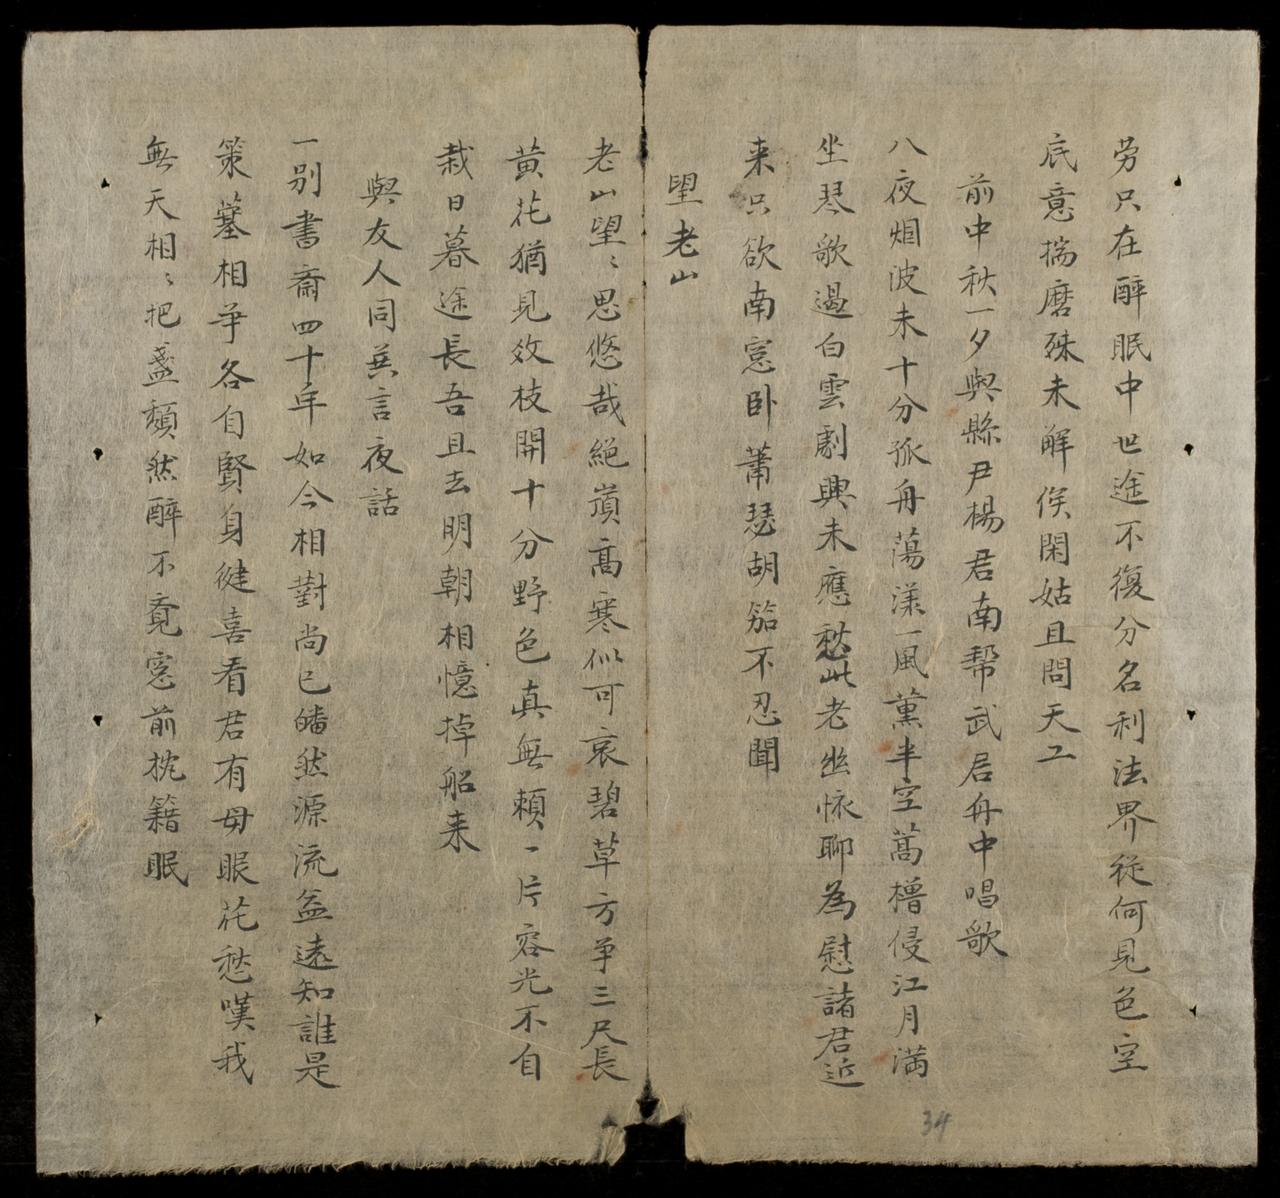 劳只在醉眠中世途不復分名利法界從何見色空
底意揣磨殊未解俟閑姑且問天工
前中秋一夕與縣尹楊君南幇武居舟中唱歌
八夜烟波未十分孤舟蕩漾一風薰半空蒿櫓侵江月满
坐琴歌遏白雲劇興未應愁此老幽懐聊為慰諸君近
来只欲南窓卧蕭瑟胡笳不忍聞
望老山
老山望〻思悠哉絕嵿髙寒似可哀碧草方争三尺長
黄花猶見效枝開十分野色真無頼一片容光不自
栽日暮途長吾且去明朝相憶掉船来
與友人同巽言夜話
一别書齋四十年如今相對尚已皤然源流益遠知誰是
策墓相争各自賢身健喜看君有母眼花愁嘆我
無天相〻把盞頽然醉不竟窓前枕籍眠
34